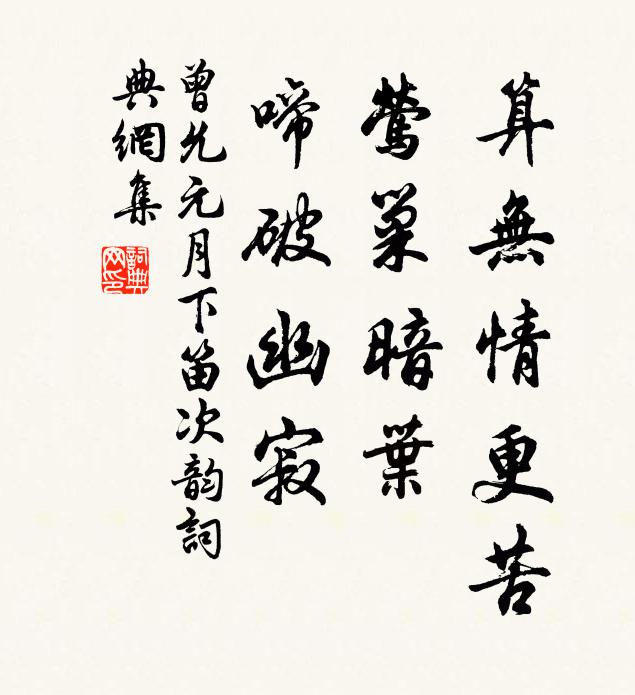 算無情更苦
鶯巢暗葉
啼破幽寂
曾允元月下笛次韵詞
典網集
詞典網印